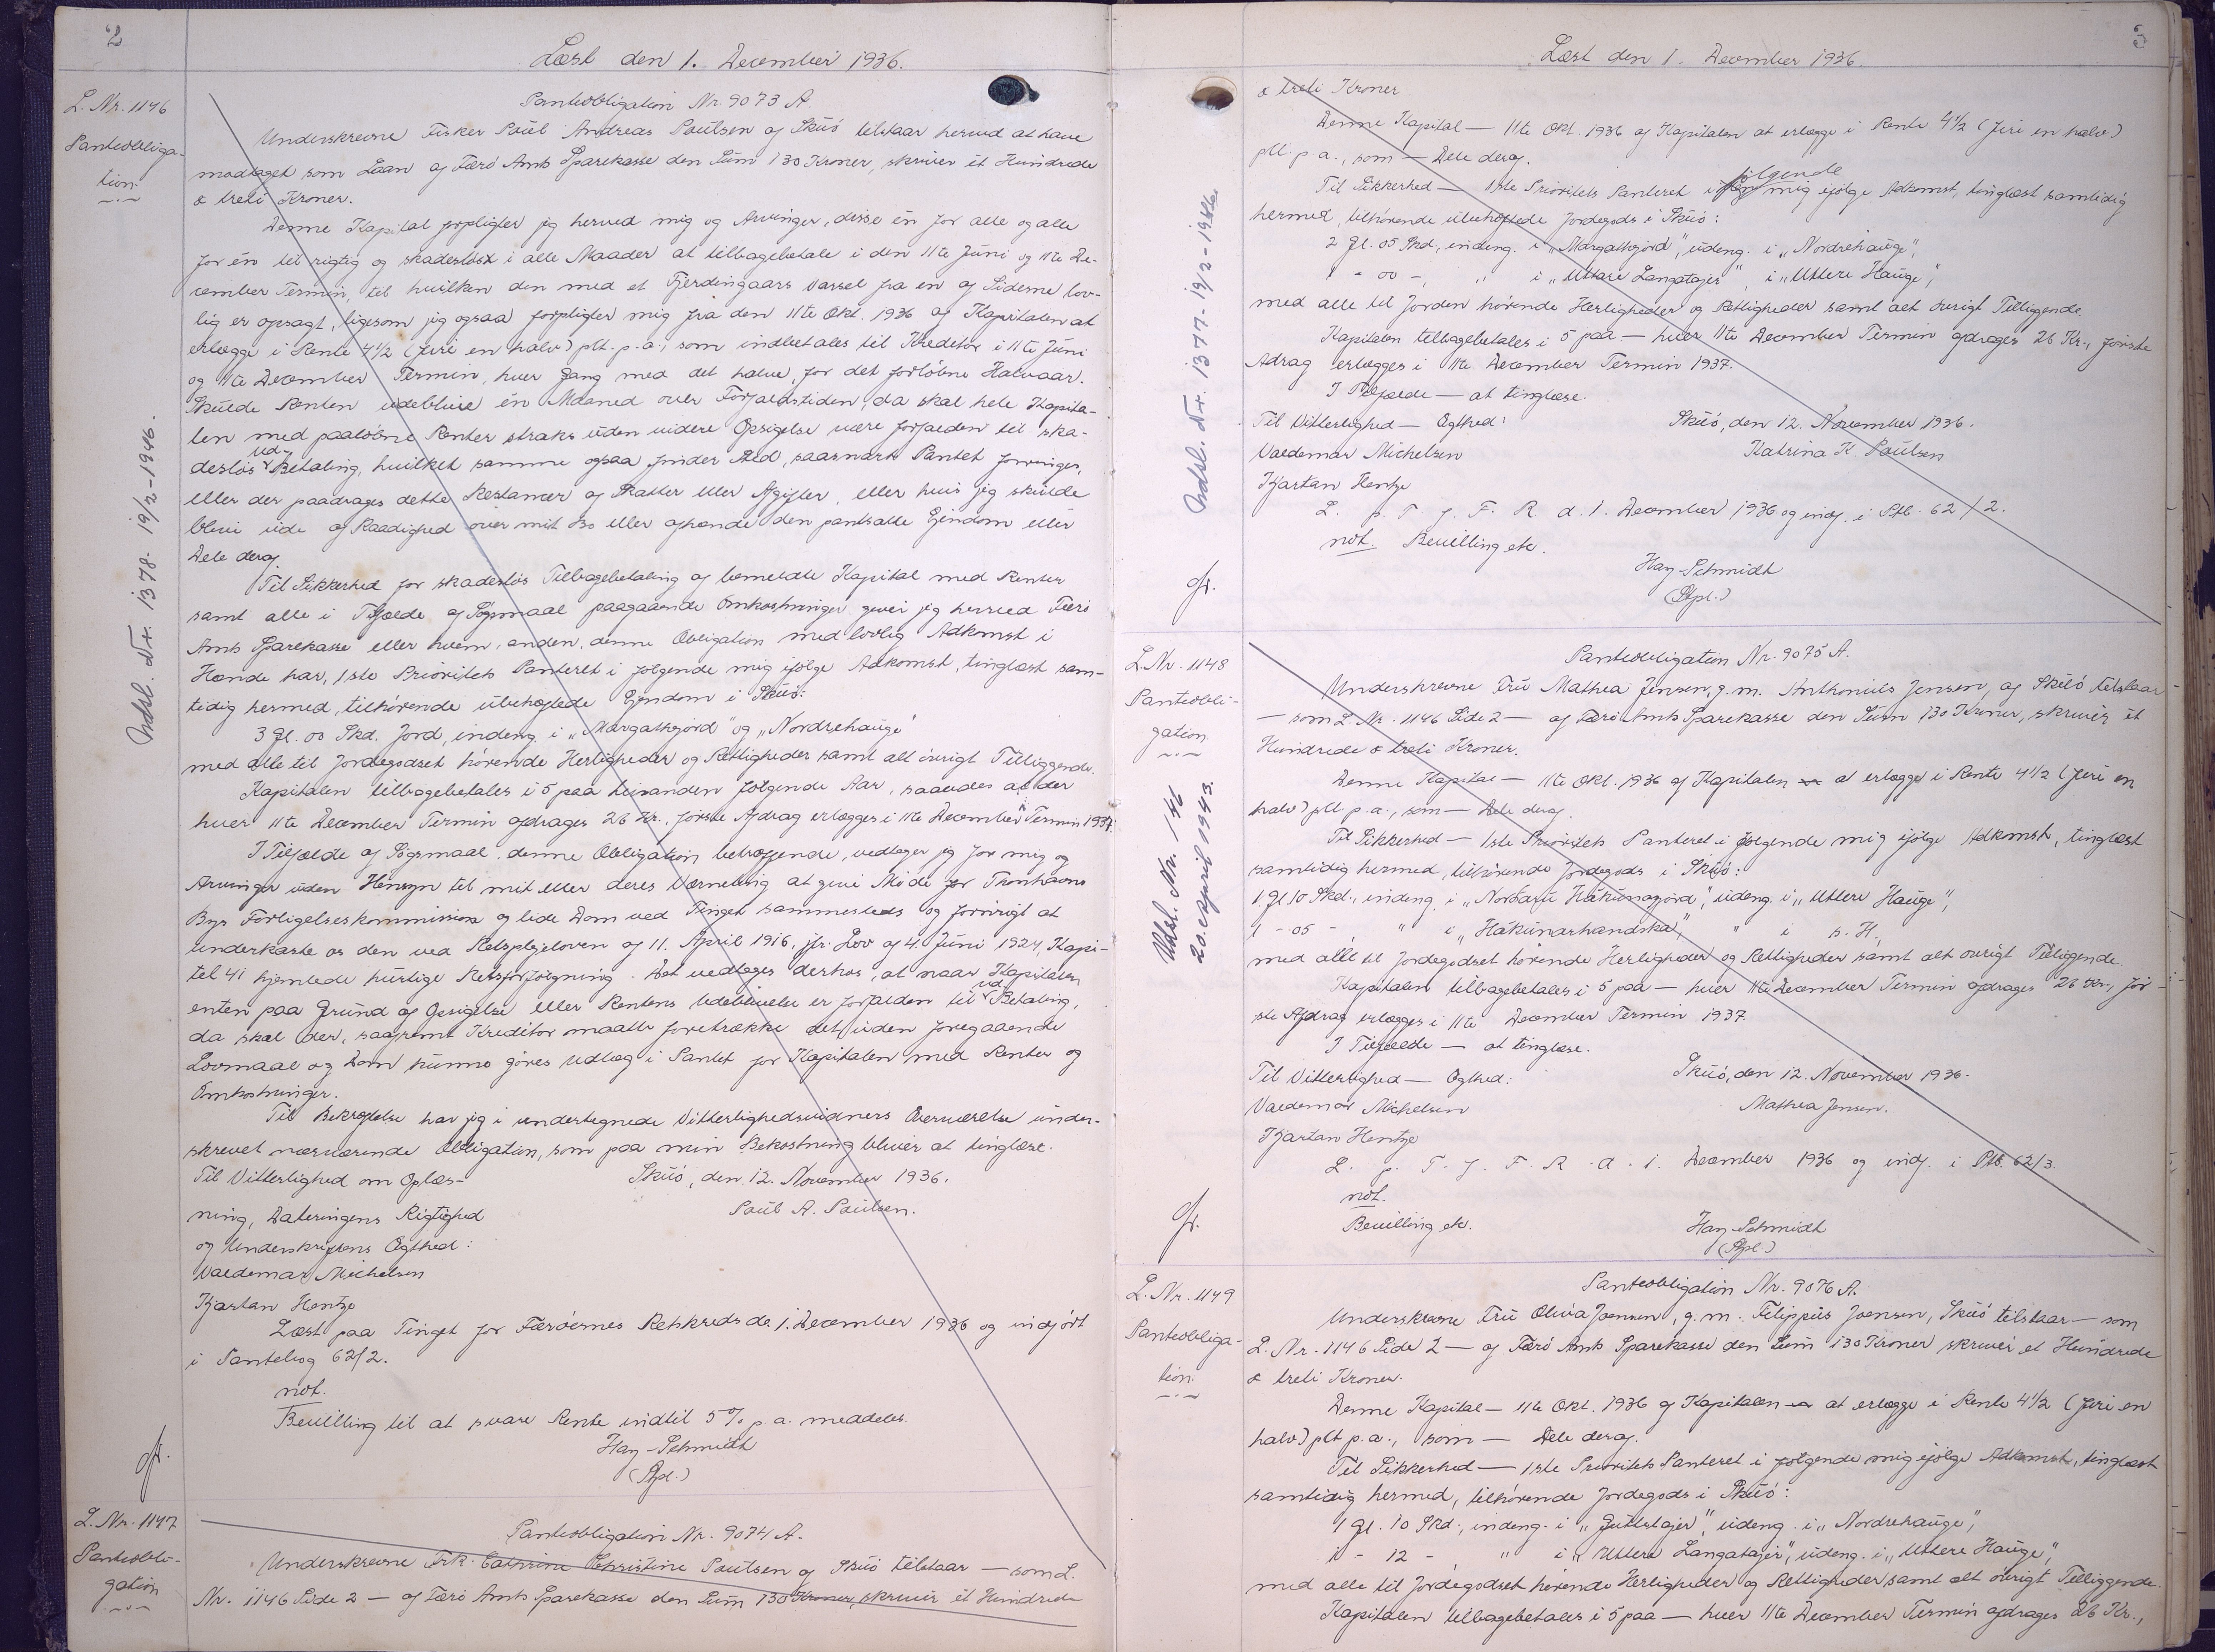 2
Læst den 1. December 1936.
L. Nr. 1146
Panteobliga-
tion.
Panteobligation Nr. 9073 A.
Underskrevne Fisker Poul Andreas Poulsen af Skuö tilstaar herved at have
modtaget som Laan af Færö Amts Sparekasse den Sum 130 Kroner, skriver et Hundrede
& treti Kroner.
Denne Kapital forpligter jeg herved mig og Arvinger, disse én for alle og alle
for én til rigtig og skadeslöst i alle Maader at tilbagebetale i den 11te Juni og 11te De-
cember Termin, til hvilken den med et Fjerdingaars Varsel fra en af Siderne lov-
lig er opsagt, ligesom jeg ogsaa forpligter mig fra den 11te Okt. 1936 af Kapitalen at
erlægge i Rente 4 1/2 (firi en halv) pCt. p. a., som indbetales til Kreditor i 11te Juni
og 11te December Termin, hver Gang med det halve, for det forlöbne Halvaar.
Skulde Renten udeblive én Maaned over Forfaldstiden, da skal hele Kapita-
len med paalöbne Renter straks uden videre Opsigelse være forfalden til ska-
deslös Udbetaling, hvilket samme ogsaa finder Sted, saasnart Pantet forringes,
eller der paadrages dette Restancer af Skatter eller Afgifter, eller hvis jeg skulde
blive ude af Raadighed over mit Bo eller afhænde den pantsatte Ejendom eller
Dele deraf.
Til Sikkerhed for skadeslös Tilbagebetaling af bemeldte Kapital med Renter
samt alle i Tilfælde af Sögsmaal paagaaende Omkostninger giver jeg herved Færö
Amts Sparekasse eller hvem anden, denne Obligation med lovlig Adkomst i
Hænde har, 1ste Prioritets Panteret i fölgende mig ifölge Adkomst, tinglæst sam-
tidig hermed, tilhörende ubehæftede Ejendom i Skuö:
3 Gl. 00 Skd. Jord, indeng. i „Margathsgjord" og „Nordrehauge"
med alle til Jordegodset hörende Herligheder og Rettigheder samt alt övrigt Tilliggende.
Kapitalen tilbagebetales i 5 paa hinanden fölgende Aar, saaledes at der
hver 11te December Termin afdrages 26 Kr., förste Afdrag erlægges i 11te December Termin 1937.
I Tilfælde af Sögsmaal, denne Obligation betræffende, vedtager jeg for mig og
Arvinger uden Hensyn til mit eller deres Værneting at give Möde for Thorshavns
Bys Forligelseskommission og lide Dom ved Tinget sammesteds og forövrigt at
underkaste os den ved Retsplejeloven af 11. April 1916, jfr. Lov af 4. Juni 1924, Kapi-
tel 41 hjemlede hurtige Retsforfölgning. Det vedtages derhos, at naar Kapitalen
enten paa Grund af Opsigelse eller Rentens Udeblivelse er forfalden til Udbetaling,
da skal der, saafremt Kreditor maatte foretrække det, uden foregaaende
Lovmaal og Dom kunne göres Udlæg i Pantet for Kapitalen med Renter og
Omkostninger.
Til Bekræftelse har jeg i undertegnede Vitterlighedsvidners Overværelse under-
skrevet nærværende Obligation, som paa min Bekostning bliver at tinglæse.
Til Vitterlighed om Oplæs- Skuö, den 12. November 1936.
ning, Dateringens Rigtighed Poul A. Poulsen.
og Underskriftens Ægthed:
Valdemar Michelsen
Kjartan Hentze
Læst paa Tinget for Færöernes Retskreds d. 1. December 1936 og indfört
i Pantebog 62/2.
not.
Bevilling til at svare Rente indtil 5 % p. a. meddeles.
Hay-Schmidt
(Stpl.)
Udsl. Nr. 1378- 19/2-1946.
L. Nr. 1147
Panteobli-
gation
Panteobligation Nr. 9074 A.
Underskrevne Frk. Cathrine Christine Poulsen af Skuö tilstaar — som L.
Nr. 1146 Side 2 — af Færö Amts Sparekasse den Sum 130 Kroner, skriver ét Hundrede
3
Læst den 1. December 1936.
& treti Kroner.
Denne Kapital — 11te Okt. 1936 af Kapitalen at erlægge i Rente 4 1/2 (firi en halv)
pCt. p. a., som — Dele deraf.
Til Sikkerhed — 1ste Prioritets Panteret i fölgende mig ifölge Adkomst, tinglæst samtidig
hermed, tilhörende ubehæftede Jordegods i Skuö:
2 Gl. 05 Skd., indeng. i „Margathsgjord", udeng. i „Nordrehauge",
1 - 00 - , " i „Uttare Langatajer", i „Uttere Hauge",
med alle til Jorden hörende Herligheder og Rettigheder samt alt övrigt Tilliggende.
Kapitalen tilbagebetales i 5 paa — hver 11te December Termin afdrages 26 Kr., förste
Adrag erlægges i 11te December Termin 1937.
I Tilfælde — at tinglæse.
Til Vitterlighed — Ægthed: Skuö, den 12. November 1936.
Valdemar Michelsen Katrina K. Poulsen
Kjartan Hentze
L. p. T. f. F. R. d. 1. December 1936 og indf. i Ptb. 62/2.
not. Bevilling etc.
Hay-Schmidt
(Stpl.)
Udsl. Nr. 1377- 19/2-1946.
L. Nr. 1148
Panteobli-
gation
Panteobligation Nr. 9075 A.
Underskrevne Fru Mathea Jensen, g. m. Anthonius Jensen, af Skuö tilstaar
— som L. Nr. 1146 Side 2 — af Færö Amts Sparekasse den Sum 130 Kroner, skriver ét
Hundrede & treti Kroner.
Denne Kapital — 11te Okt. 1936 af Kapitalen at erlægge i Rente 4 1/2 (firi en
halv) pCt. p. a., som — Dele deraf.
Til Sikkerhed — 1ste Prioritets Panteret i fölgende mig ifölge Adkomst, tinglæst
samtidig hermed, tilhörende Jordegods i Skuö:
1 Gl 10 Skd., indeng. i „Nordari Hákunagjord", udeng. i „Uttere Hauge",
1 - 05 - , " i „Hákunarhandska", " i s. H.,
med alle til Jordegodset hörende Herligheder og Rettigheder samt alt övrigt Tilliggende.
Kapitalen tilbagebetales i 5 paa — hver 11te December Termin afdrages 26 Kr., för-
ste Afdrag erlægges i 11te December Termin 1937.
I Tilfælde — at tinglæse.
Til Vitterlighed — Ægthed: Skuö, den 12. November 1936.
Valdemar Michelsen Mathea Jensen.
Kjartan Hentze
L. p. T. f. F. R. d. 1. December 1936 og indf. i Ptb. 62/3.
not.
Bevilling etc. Hay-Schmidt
(Stpl.)
Udsl. Nr. 146
20. april 1943.
L. Nr. 1149
Panteobliga-
tion.
Panteobligation Nr. 9076 A.
Underskrevne Fru Olivia Joensen, g. m. Filippus Joensen, Skuö tilstaar — som
L. Nr. 1146 Side 2 — af Færö Amts Sparekasse den Sum 130 Kroner skriver et Hundrede
& treti Kroner.
Denne Kapital — 11te Okt. 1936 af Kapitalen at erlægge i Rente 4 1/2 (firi en
halv) pCt p. a., som — Dele deraf.
Til Sikkerhed — 1ste Prioritets Panteret i fölgende mig ifölge Adkomst, tinglæst
samtidig hermed, tilhörende Jordegods i Skuö:
1 Gl. 10 Skd., indeng. i „Gullstajer", udeng. i „Nordrehauge",
1 - 12 - , " i „Uttere Langatajer", udeng. i „Uttere Hauge",
med alle til Jordegodset hörende Herligheder og Rettigheder samt alt övrigt Tilliggende.
Kapitalen tilbagebetales i 5 paa — hver 11te December Termin afdrages 26 Kr.,